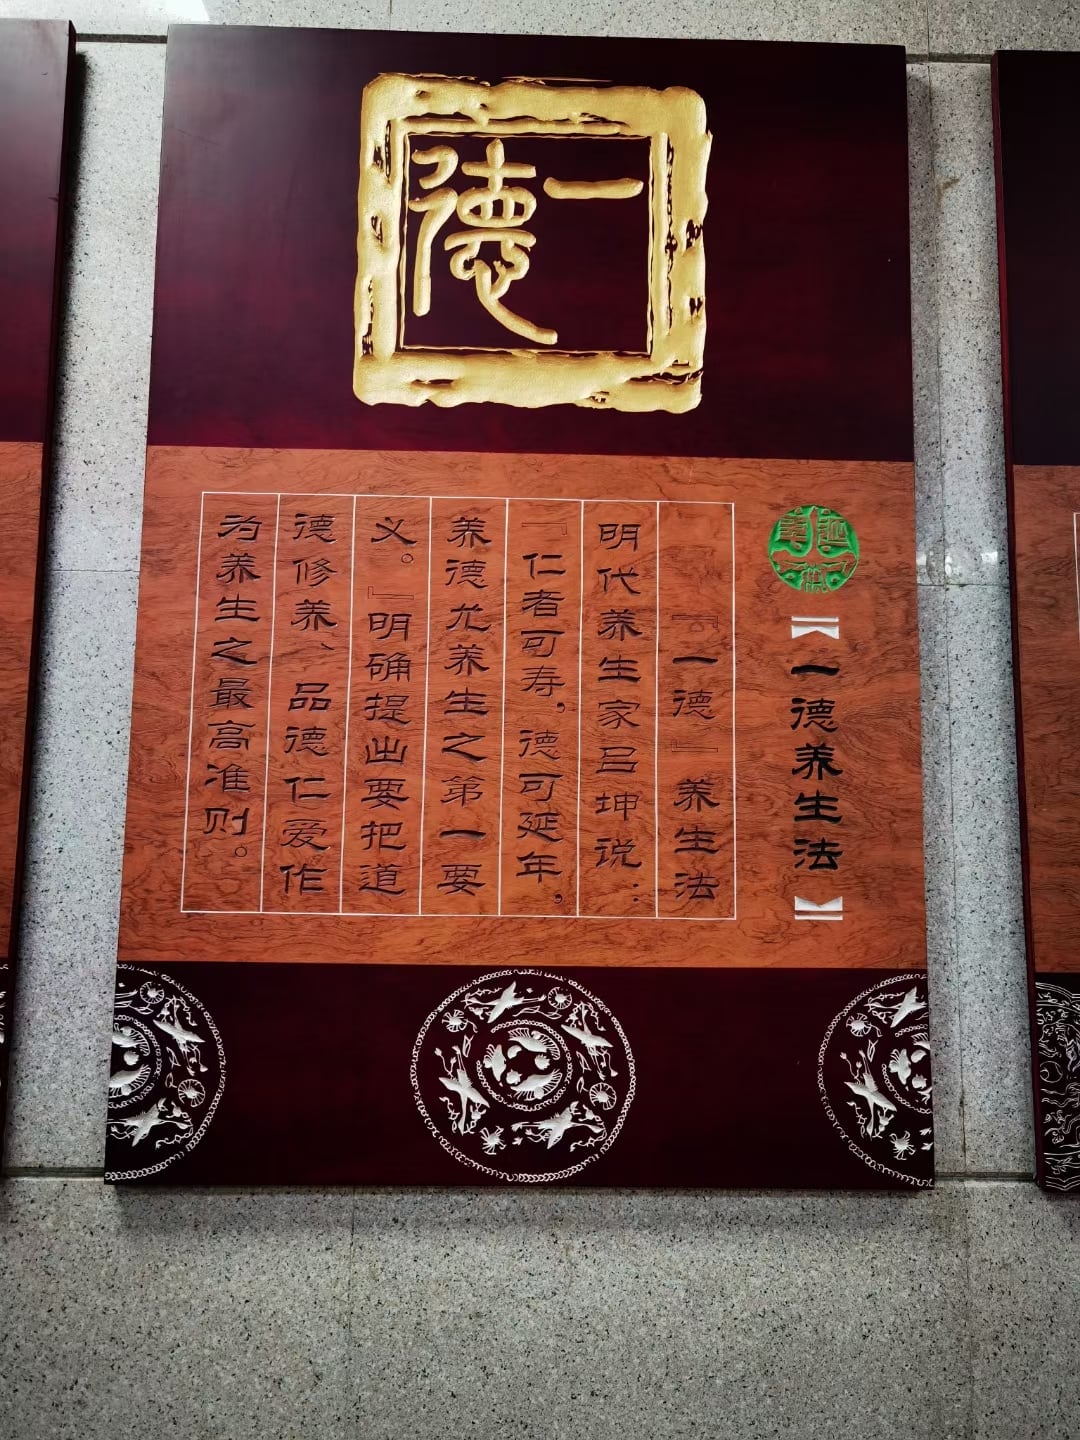 一德
【一德养生法】
『一德』养生法
明代养生家吕坤说：
『仁者可寿，德可延年，
养德尤养生之第一要
义。』明确提出要把道
德修养、品德仁爱作
为养生之最高准则。